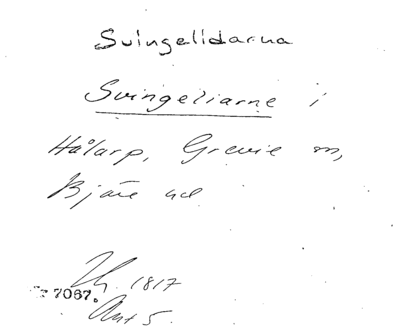 Svingelidarna
Svingeliarne i
Hålarp, Grevie sn,
Bjäre hd
1817
7067.
Akt 5.